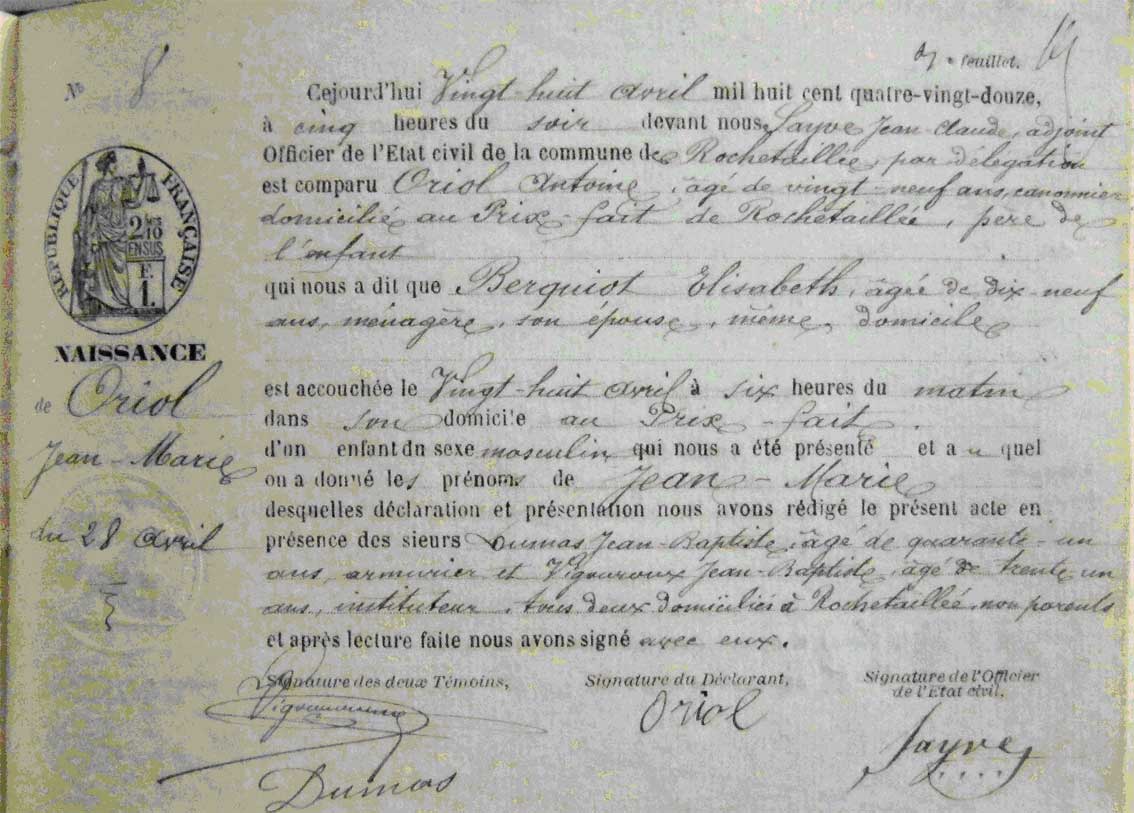 feuillet.
N° 8
Cejourd'hui Vingt-huit avril mil huit cent quatre-vingt-douze,
à cinq heures du soir devant nous, Sayve Jean-Claude, adjoint
Officier de l'Etat civil de la commune de Rochetaillée, par délégation
est comparu Oriol Antoine, âgé de vingt-neuf ans, canonnier
domicilié au Prix-fait de Rochetaillée, père de
l'enfant
qui nous a dit que Berquiot Elisabeth, âgée de dix-neuf
ans, ménagère, son épouse, même domicile
RÉPUBLIQUE FRANÇAISE
2/10
EN SUS
F.
1.
NAISSANCE
de Oriol
Jean-Marie
du 28 avril
est accouchée le Vingt-huit avril à six heures du matin
dans son domicile au Prix-fait.
d'un enfant du sexe masculin qui nous a été présenté et auquel
on a donné les prénoms de Jean-Marie
desquelles déclaration et présentation nous avons rédigé le présent acte en
présence des sieurs Dumas Jean-Baptiste, âgé de quarante-un
ans, armurier et Vigouroux Jean-Baptiste, âgé de trente un
ans, instituteur, tous deux domiciliés à Rochetaillée, non parents
et après lecture faite nous avons signé avec eux.
Signature des deux Témoins,
Signature du Déclarant,
Signature de l'Officier
de l'Etat civil.
Vigouroux
Oriol
Sayve
Dumas